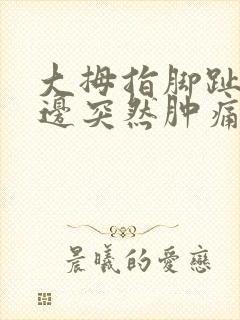 大拇指脚趾
邊突然肿痛
晨曦的愛戀